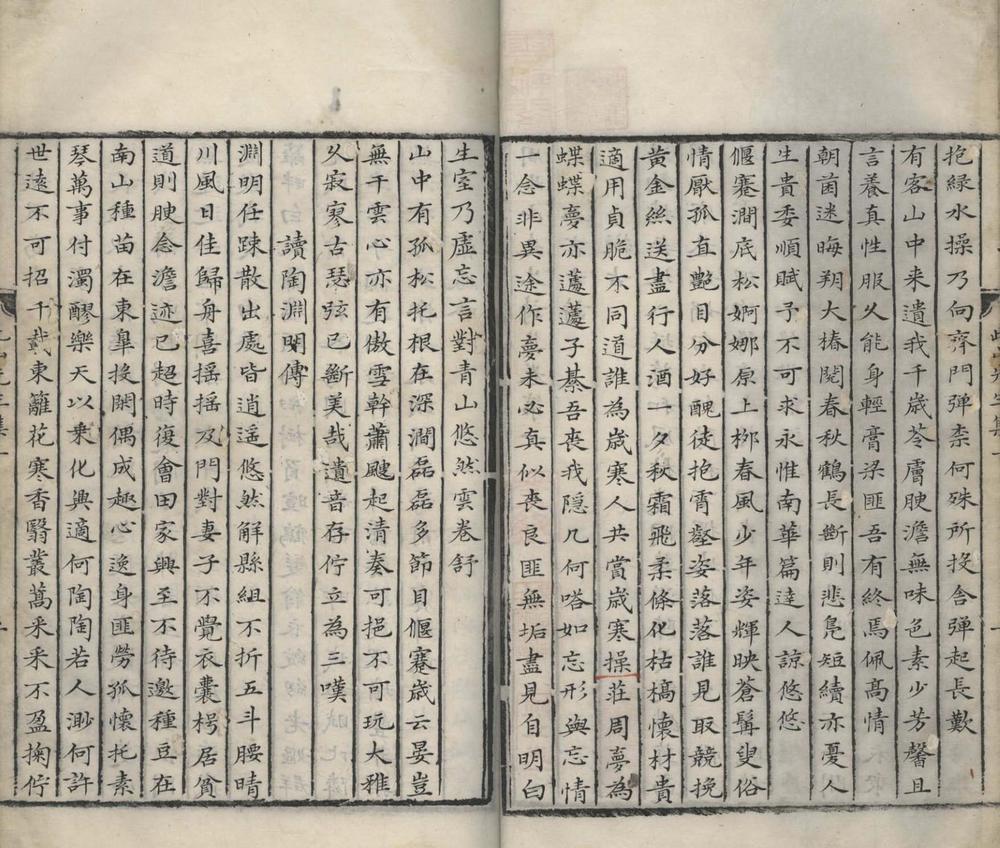 抱緑水操乃向齊門弹柰何殊所投舍弹起長歎
有客山中来遺我千歳苓膚腴澹無味色素少芳馨且
言養真性服乆能身輕膏梁匪吾有終焉佩髙情
朝菌迷晦朔大椿閱春秋鶴長斷則悲鳬短續亦憂人
生貴委順賦予不可求永惟南華篇達人諒悠悠
偃蹇澗底松婀娜原上栁春風少年姿輝映蒼髯叟俗
情厭孤直艷目分好醜徒抱霄壑姿落落誰見取競挽
黄金絲送盡行人酒一夕秋霜飛柔條化枯槁懐材貴
適用貞脆不同道誰為歳寒人共賞歳寒操莊周夢為
蝶蝶夢亦蘧蘧子綦吾喪我隠几何嗒如忘形與忘情
一念非異途作夢未必真似喪良匪無垢盡見自明白
生室乃虛忘言對青山悠然雲卷舒
山中有孤松托根在深澗磊磊多節目偃蹇歳云晏豈
無干雲心亦有傲雪幹蕭颼起清奏可挹不可玩大雅
乆寂寥古瑟弦已斷美哉遺音存佇立為三嘆
讀陶淵明傳
淵明任踈散出處皆逍遥悠然解縣組不折五斗腰晴
川風日佳歸舟喜揺揺及門對妻子不覺衣囊枵居貧
道則腴念澹迹已超時復會田家興至不待邀種豆在
南山種苗在東臯投閑偶成趣心逸身匪勞孤懐托素
琴萬事付濁醪樂天以乗化興適何陶陶若人渺何許
世遠不可招千載東籬花寒香翳叢蒿采采不盈掬佇